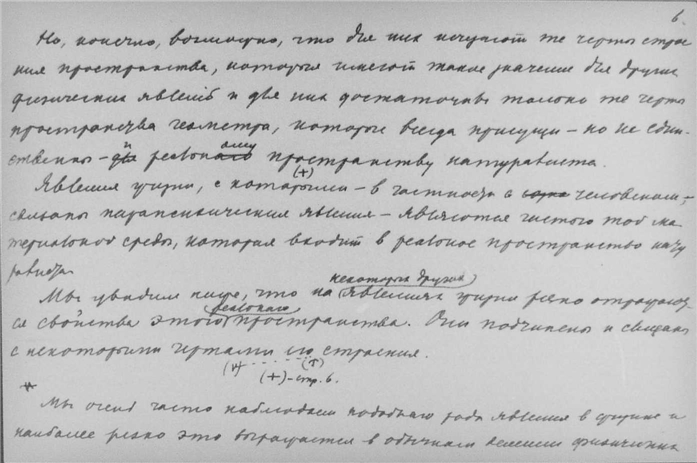 6.
Но, конечно, возможно, что для них исчезают те черты строе
ния пространства, которые имеют такое значение для других
физических явлений и для них достаточны только те черты
пространства геометра, которые всегда присущи – но не един-
ственны – и реальному пространству натуралиста.
(+)
Явления жизни, с которыми – в частности с человеком –
связаны парапсихические явления – являются частью той ма
териальной среды, которая входит в реальное пространство нату
ралиста.
некоторых других
Мы увидим ниже, что на явлениях жизни резко отражают
реального
ся свойства этого пространства. Они подчинены и связаны
с некоторыми чертами его строения.
(+) – стр. 6.
*
Мы очень часто наблюдаем подобного рода явления в жизни и
наиболее резко это выражается в обычном делении физических